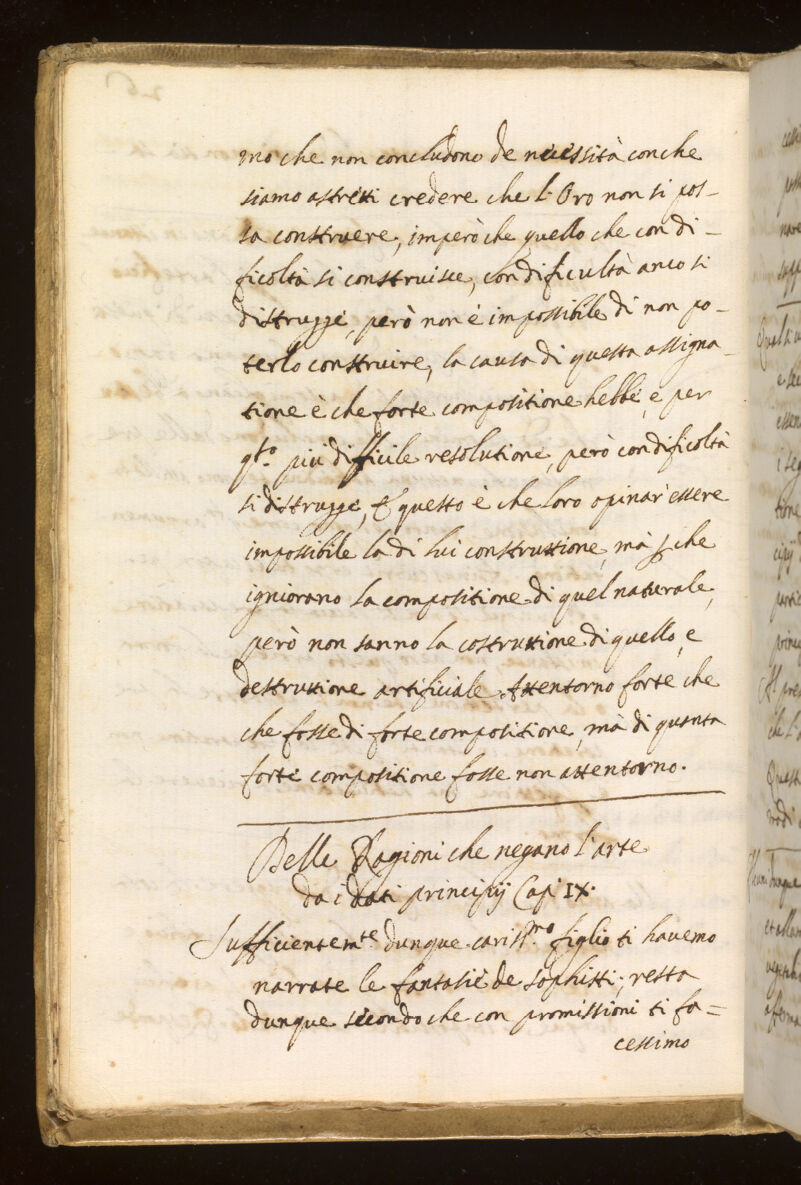 mo che non concludono de necessità con che
siamo astretti credere che l'Oro non si pos-
sa construere, imperò che quello che con di-
ficoltà si construisce, con dificultà anco si
distrugge, però non è impossibile di non po-
terlo construire, la causa di questa assigna-
tione è che forte compositione hebbe, e per
q.to più difficile resolutione, però con dificoltà
si distrugge, & questo è che loro opinar' essere
impossibile la di lui construttione, mà che
igniorano la compositione di quel naturale,
però non sanno la costruttione di quello, e
destruttione artificiale. Attentorno forte che
che fosse di forte compositione, mà di quanta
forte compositione fosse non attentorno.
Delle Ragioni che negano l'arte
da i dati principij Cap. IX.
Sufficientem.te dunque cariss.mo figlio ti havemo
narrate le fantasie de sophisti, resta
dunque secondo che con promissioni ti fa=
cessimo
26